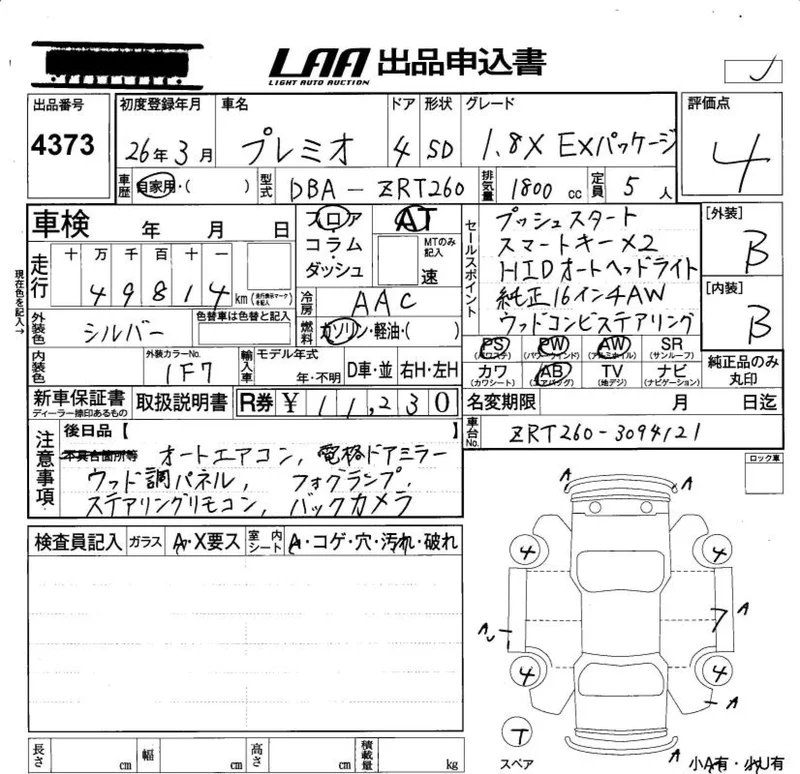 LAA 出品申込書
LIGHT AUTO AUCTION
出品番号
4373
初度登録年月
26年3月
車名
プレミオ
ドア
4
形状
SD
グレード
1.8X EXパッケージ
評価点
4
車歴
自家用・( )
型式
DBA-ZRT260
排気量
1800 cc
定員
5人
車検 年 月 日
フロア
コラム・
ダッシュ
AT
MTのみ記入
速
セールスポイント
プッシュスタート
スマートキー×2
HIDオートヘッドライト
純正16インチAW
ウッドコンビステアリング
[外装]
B
[内装]
B
現在色を記入→
走行
十 万 千 百 十 一
4 9 8 1 4 km
(走行表示マークを記入)
冷房
AAC
燃料
ガソリン・軽油・( )
外装色
シルバー
色替車は色替と記入
内装色
外装カラーNo.
1F7
輸入車
モデル年式
年・不明
D車・並
右H・左H
PS (パワステ)
PW (パワーウインド)
AW (アルミホイル)
SR (サンルーフ)
カワ (カワシート)
AB (エアバッグ)
TV (地デジ)
ナビ (ナビゲーション)
純正品のみ
丸印
新車保証書
ディーラー捺印あるもの
取扱説明書
R券 ¥ 11,230
名変期限 月 日迄
車台No.
ZRT260-3094121
注意事項
後日品【 】
不具合箇所等
オートエアコン, 電格ドアミラー
ウッド調パネル, フォグランプ,
ステアリングリモコン, バックカメラ
ロック車
検査員記入
ガラス
A・X要ス
室内シート
A・コゲ・穴・汚れ・破れ
A
A
4
4
A
7
A
4
4
A
T
スペア
A
小A有・小U有
長さ cm
幅 cm
高さ cm
積載量 kg